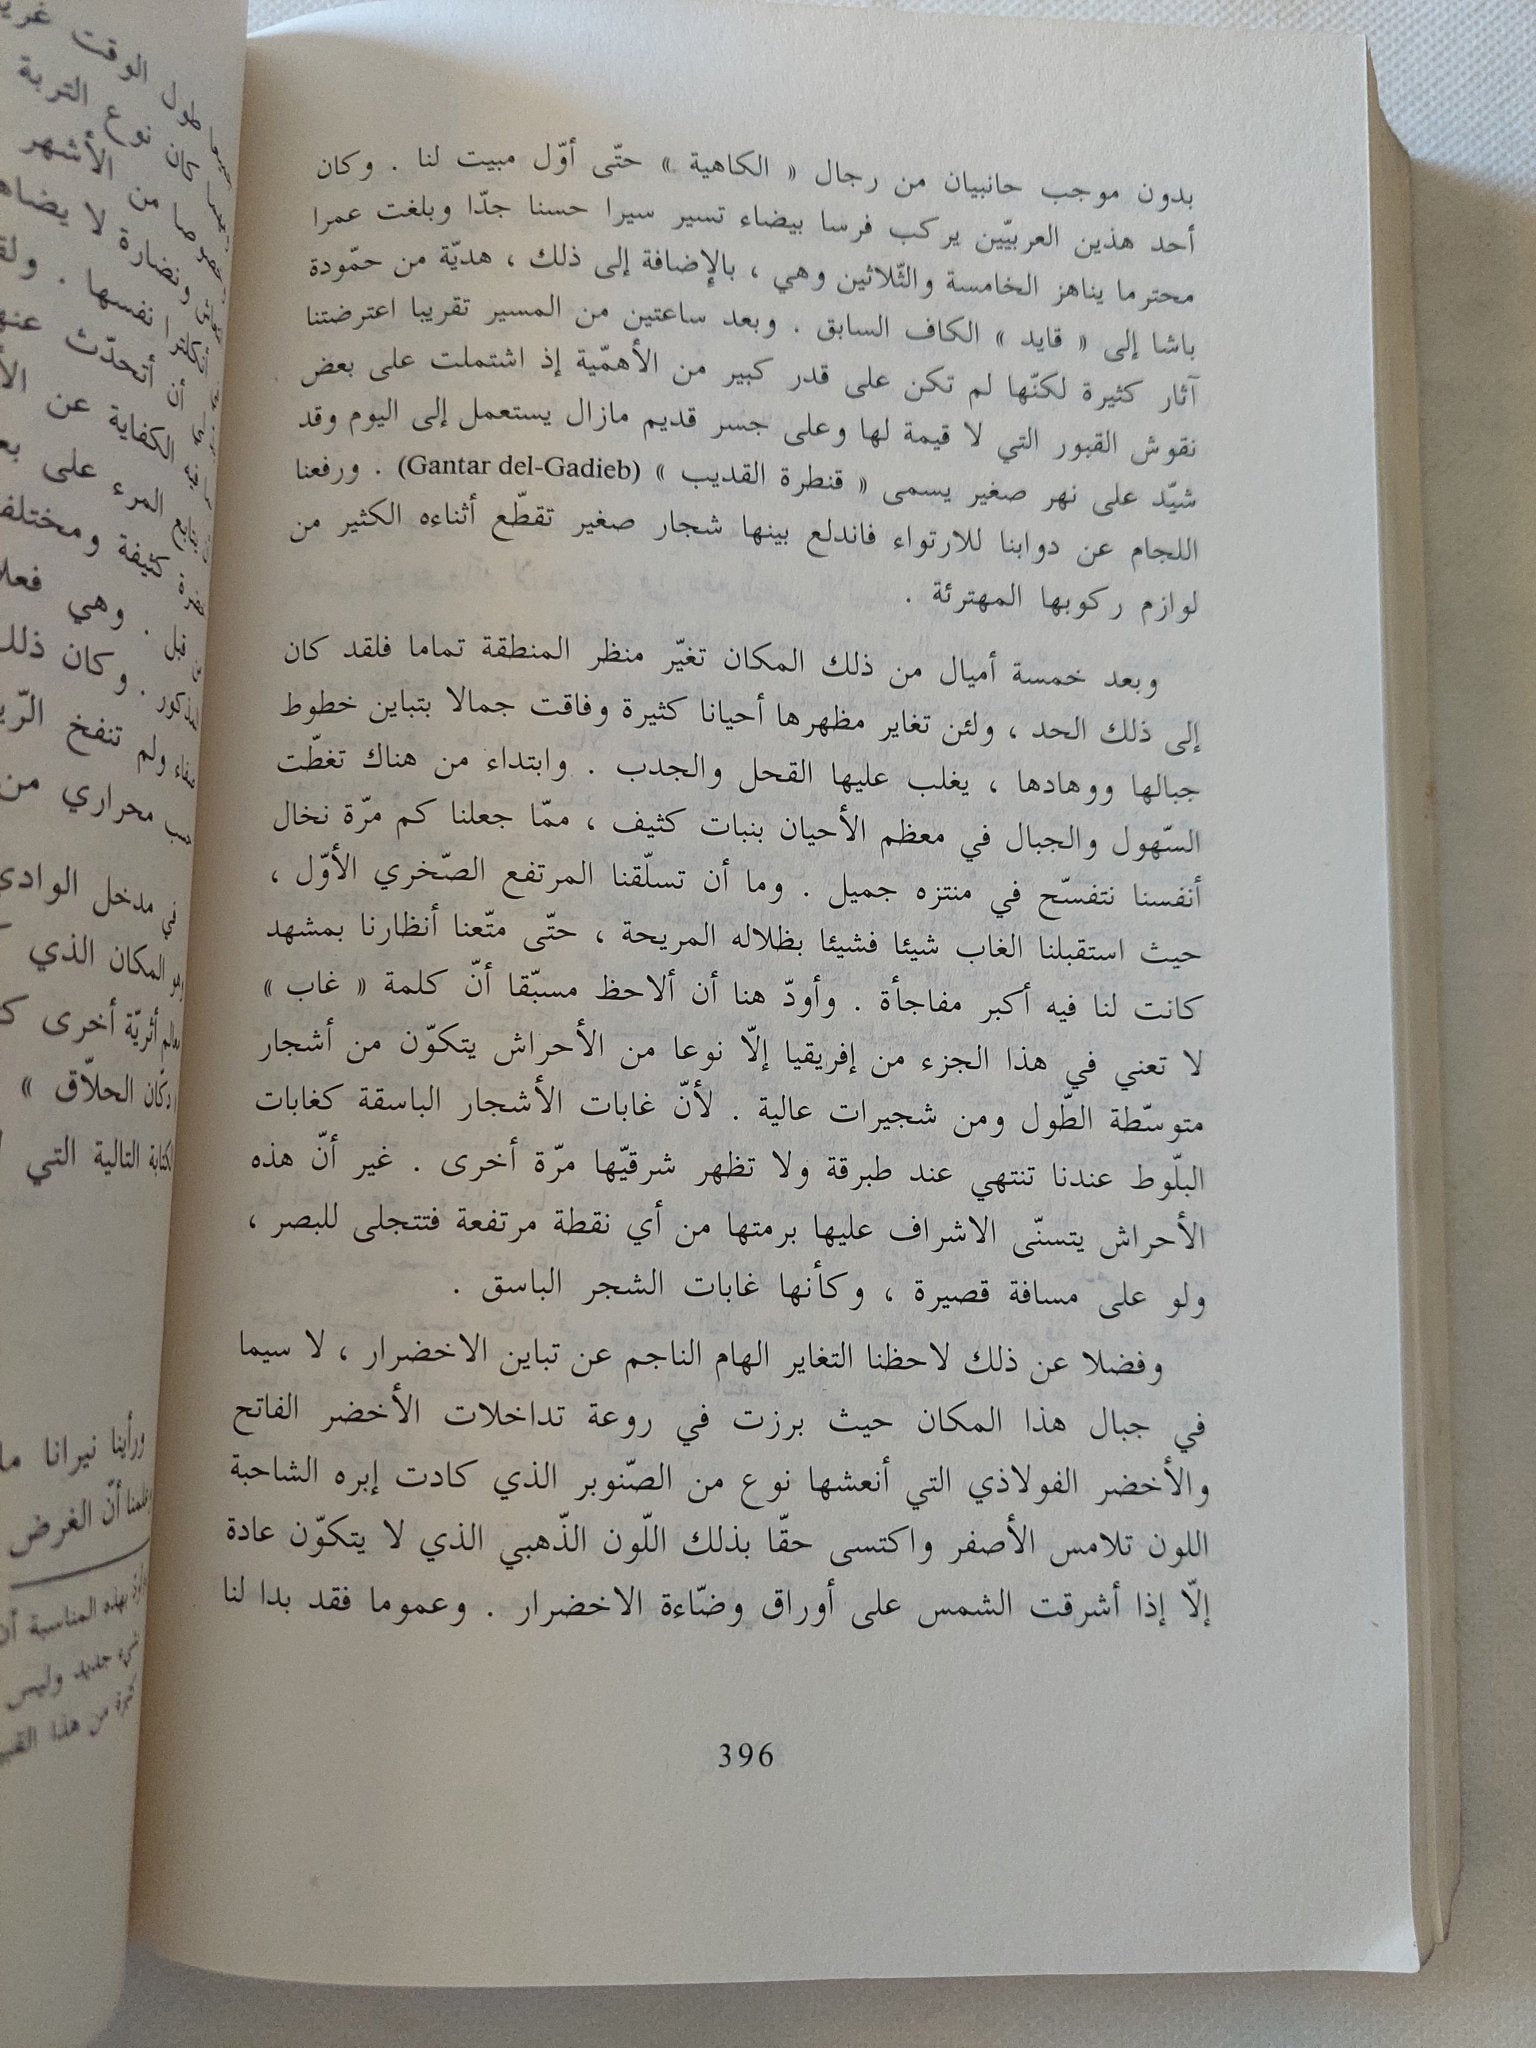 بدون موجب حانبيان من رجال « الكاهية » حتّى أوّل مبيت لنا . وكان
أحد هذين العربيّين يركب فرسا بيضاء تسير سيرا حسنا جدّا وبلغت عمرا
محترما يناهز الخامسة والثّلاثين وهي ، بالإضافة إلى ذلك ، هديّة من حمّودة
باشا إلى « قايد » الكاف السابق . وبعد ساعتين من المسير تقريبا اعترضتنا
آثار كثيرة لكنّها لم تكن على قدر كبير من الأهمّية إذ اشتملت على بعض
نقوش القبور التي لا قيمة لها وعلى جسر قديم مازال يستعمل إلى اليوم وقد
شيّد على نهر صغير يسمى « قنطرة القديب » (Gantar del-Gadieb) . ورفعنا
اللجام عن دوابنا للارتواء فاندلع بينها شجار صغير تقطّع أثناءه الكثير من
لوازم ركوبها المهترئة .
وبعد خمسة أميال من ذلك المكان تغيّر منظر المنطقة تماما فلقد كان
إلى ذلك الحد ، ولئن تغاير مظهرها أحيانا كثيرة وفاقت جمالا بتباين خطوط
جبالها ووهادها ، يغلب عليها القحل والجدب . وابتداء من هناك تغطّت
السّهول والجبال في معظم الأحيان بنبات كثيف ، ممّا جعلنا كم مرّة نخال
أنفسنا نتفسّح في منتزه جميل . وما أن تسلّقنا المرتفع الصّخري الأوّل ،
حيث استقبلنا الغاب شيئا فشيئا بظلاله المريحة ، حتّى متّعنا أنظارنا بمشهد
كانت لنا فيه أكبر مفاجأة . وأودّ هنا أن ألاحظ مسبّقا أنّ كلمة « غاب »
لا تعني في هذا الجزء من إفريقيا إلّا نوعا من الأحراش يتكوّن من أشجار
متوسّطة الطّول ومن شجيرات عالية . لأنّ غابات الأشجار الباسقة كغابات
البلّوط عندنا تنتهي عند طبرقة ولا تظهر شرقيّها مرّة أخرى . غير أنّ هذه
الأحراش يتسنّى الاشراف عليها برمتها من أي نقطة مرتفعة فتتجلى للبصر ،
ولو على مسافة قصيرة ، وكأنها غابات الشجر الباسق .
وفضلا عن ذلك لاحظنا التغاير الهام الناجم عن تباين الاخضرار ، لا سيما
في جبال هذا المكان حيث برزت في روعة تداخلات الأخضر الفاتح
والأخضر الفولاذي التي أنعشها نوع من الصّنوبر الذي كادت إبره الشاحبة
اللون تلامس الأصفر واكتسى حقّا بذلك اللّون الذّهبي الذي لا يتكوّن عادة
إلّا إذا أشرقت الشمس على أوراق وضّاءة الاخضرار . وعموما فقد بدا لنا
396
طول الوقت
كان نوع التربة
من الأشهر
ونضارة لا
نفسها .
أن أتحدّث
الكفاية عن
المرء على
كثيفة
قبل . وهي
وكان
ولم تنفخ
محراري من
في مدخل
المكان الذي
أثريّة أخرى
دكّان الحلاّق »
التالية التي
ورأينا نيرانا
أنّ الغرض
بهذه المناسبة
جديد وليس
من هذا